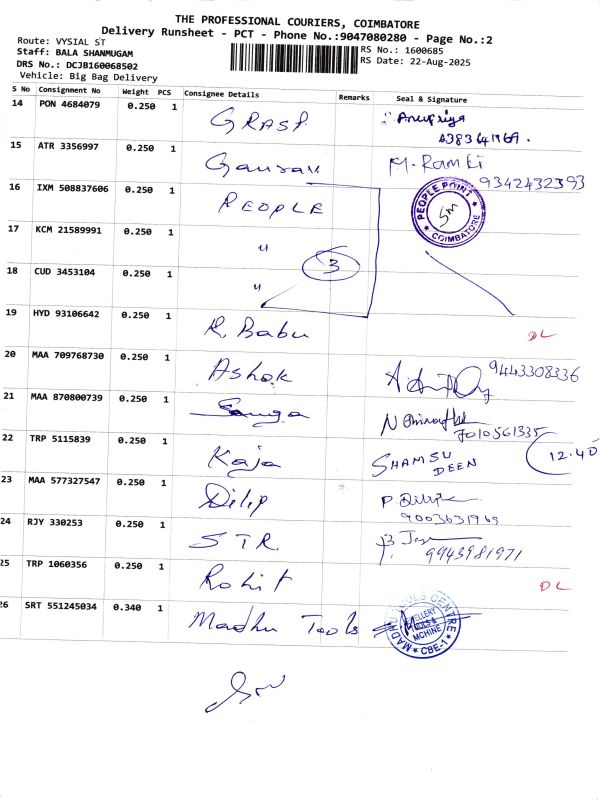 THE PROFESSIONAL COURIERS, COIMBATORE
Delivery Runsheet - PCT - Phone No.:9047080280 - Page No.:2
Route: VYSIAL ST
Staff: BALA SHANMUGAM
DRS No.: DCJB160068502
Vehicle: Big Bag Delivery
RS No.: 1600685
RS Date: 22-Aug-2025
S No Consignment No Weight PCS Consignee Details Remarks Seal & Signature
14 PON 4684079 0.250 1 GRASP Anupriya
6383641969.
15 ATR 3356997 0.250 1 Gaurav M. Ramki
9342432393
16 IXM 508837606 0.250 1 PEOPLE PEOPLE POINT ★ COIMBATORE ★
17 KCM 21589991 0.250 1 "
3
18 CUD 3453104 0.250 1 "
19 HYD 93106642 0.250 1 R. Babu DL
20 MAA 709768730 0.250 1 Ashok 9443308336
21 MAA 870800739 0.250 1 Ganga
7010561335
22 TRP 5115839 0.250 1 Kaja SHAMSU DEEN 12.40
23 MAA 577327547 0.250 1 Dilip P
9003631969
24 RJY 330253 0.250 1 STR.
9943981971
25 TRP 1060356 0.250 1 Rohit DL
26 SRT 551245034 0.340 1 Madhu Tools MADHU TOOLS CENTRE ★ CBE-1 ★